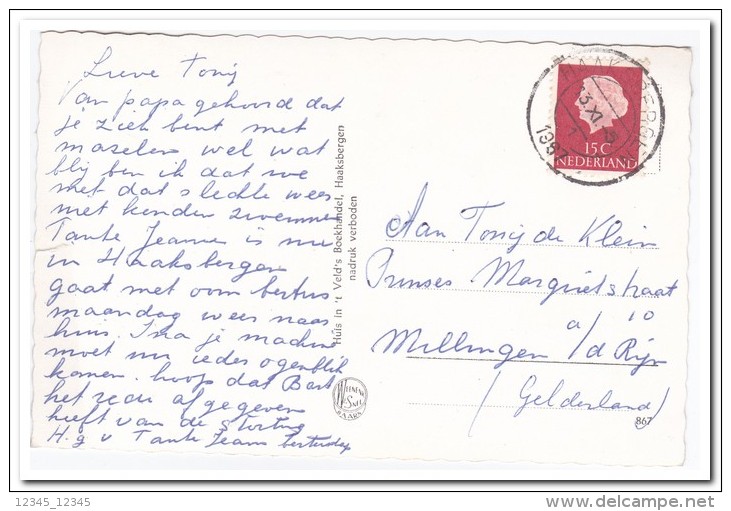 Lieve Tonij
van papa gehoord dat
je ziek bent met
mazelen wel wat
blij ben ik dat we
met dat slechte weer
niet konden zwemmen
Tante Jeanne is nu
in Haaksbergen
gaat met oom bertus
maandag weer naar
huis. Ina je machine
moet nu ieder ogenblik
komen. hoop dat Bart
het zou afgegeven
heeft van de storting
H. g v Tante Jeanne
Huis in 't Veld's Boekhandel, Haaksbergen
nadruk verboden
HAAKSBERGEN
13.XI.
1967
15 C
NEDERLAND
Aan Tonij de Klein
Prinses Margrietstraat
10
Millingen a/d Rijn
(Gelderland)
867
12345_12345
delcampe.net